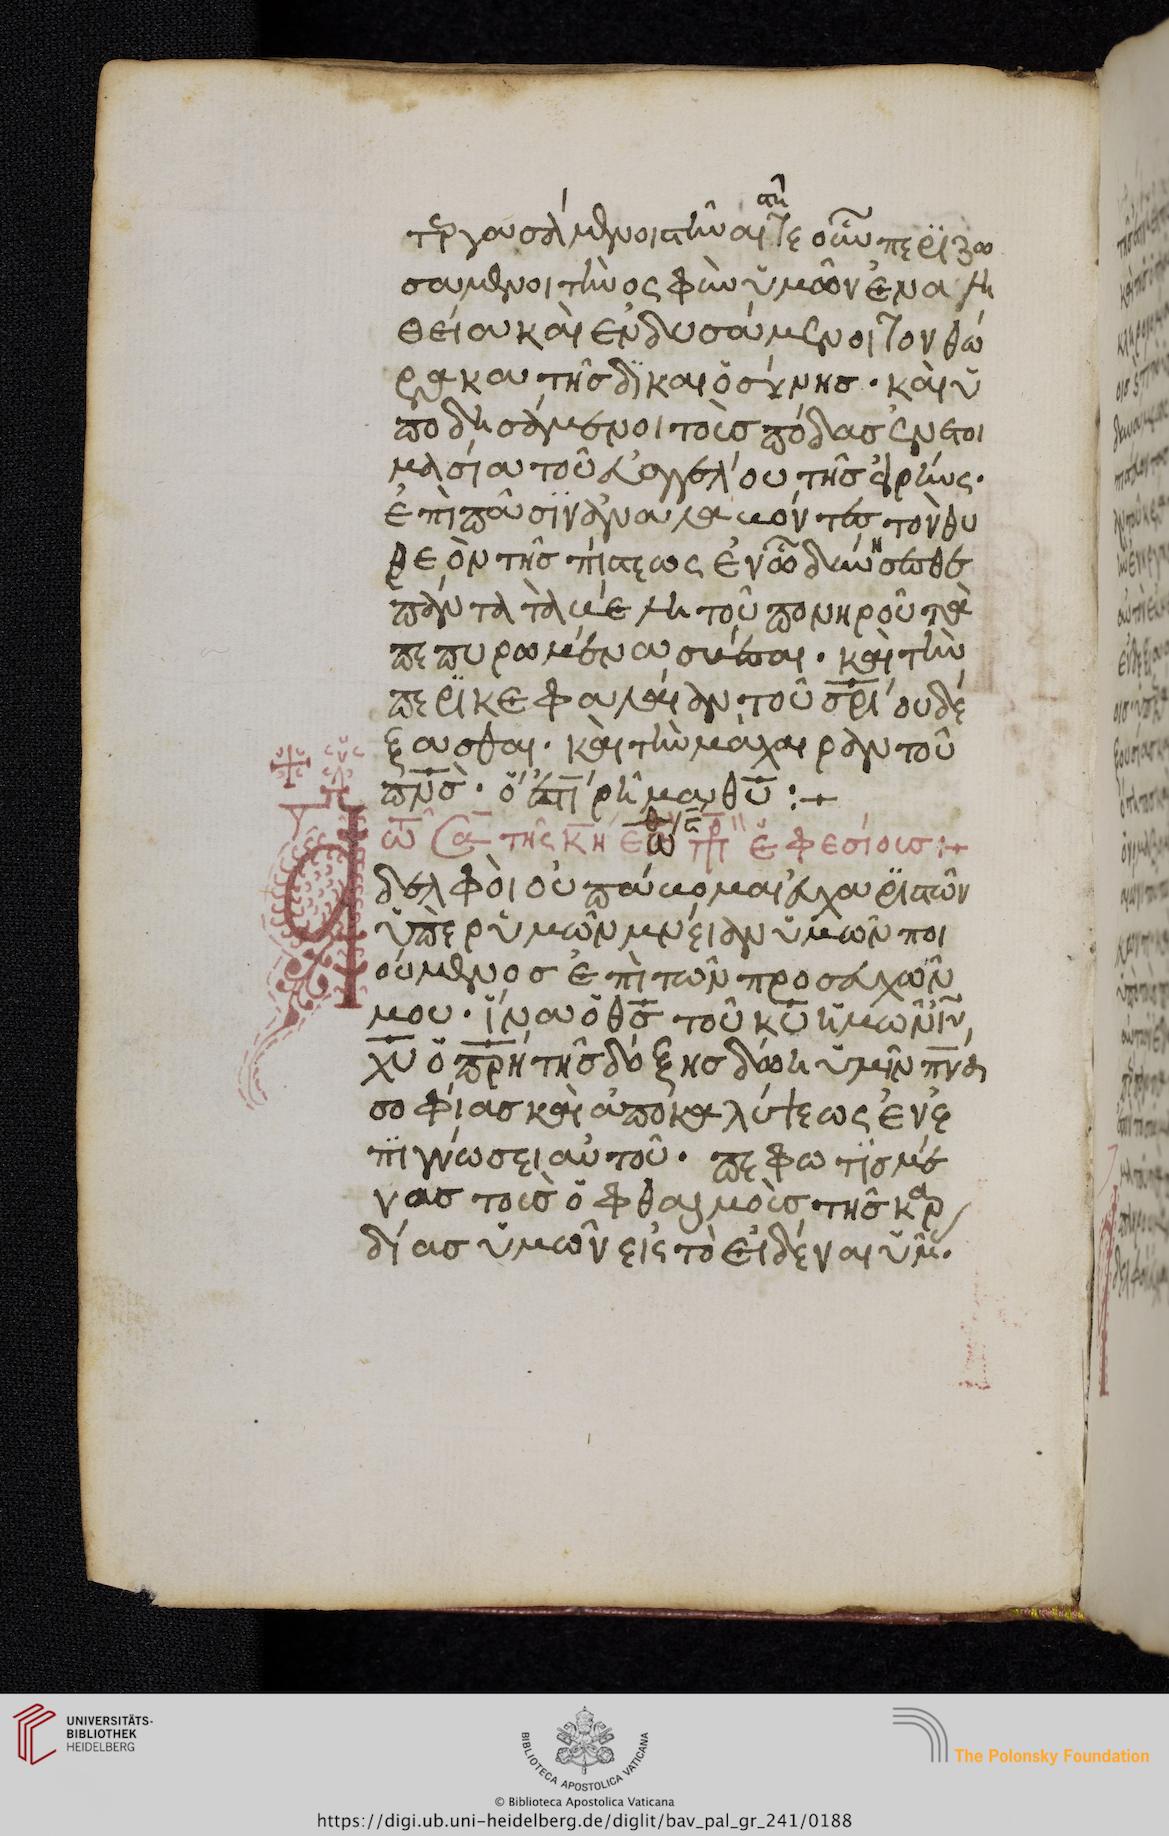 τεργασάμενοι στῆναι στῆτε οὖν περιζω
σάμενοι τὴν οσφὺν ὑμῶν ἐν α λη
θεία καὶ ενδυσάμενοι τον θώ
ρακα τῆς δικαιοσύνης · καὶ ὑ
ποδησάμενοι τοὺς πόδας ἐν ετοι
μασία τοῦ εὐαγγελίου τῆς εἰρήνης ·
ἐπὶ πᾶσιν ἀναλαβόντες τὸν θυ
ρεὸν τῆς πίστεως ἐν ᾧ δυνήσεσθε
πάντα τὰ βέλη τοῦ πονηροῦ τὰ
πεπυρωμένα σβέσαι · καὶ τὴν
περικεφαλαίαν τοῦ σρίου δέ
ξασθαι · καὶ τὴν μάχαιραν τοῦ
πνσ · ὅ ἐστι ρῆμα θυ :+
τῆς εφεσίοις :+
δελφοὶ οὐ παύομαι εὐχαριστῶν
ὑπὲρ ὑμῶν μνείαν ὑμῶν ποι
ούμενος ἐπὶ τῶν προσευχῶν
μου · ἵνα ὁ θσ τοῦ κυ ἡμῶν ιυ
χυ ὁ πρη τῆς δόξης δώη ὑμῖν πνα
σοφίας καὶ ἀποκαλύψεως ἐν ἐ
πιγνώσει αὐτοῦ · πεφωτισμέ
νας τοὺς ὀφθαλμοὺς τῆς καρ
δίας ὑμῶν εἰς τὸ εἰδέναι ὑμ ·
UNIVERSITÄTS-
BIBLIOTHEK
HEIDELBERG
BIBLIOTECA APOSTOLICA VATICANA
The Polonsky Foundation
© Biblioteca Apostolica Vaticana
https://digi.ub.uni-heidelberg.de/diglit/bav_pal_gr_241/0188